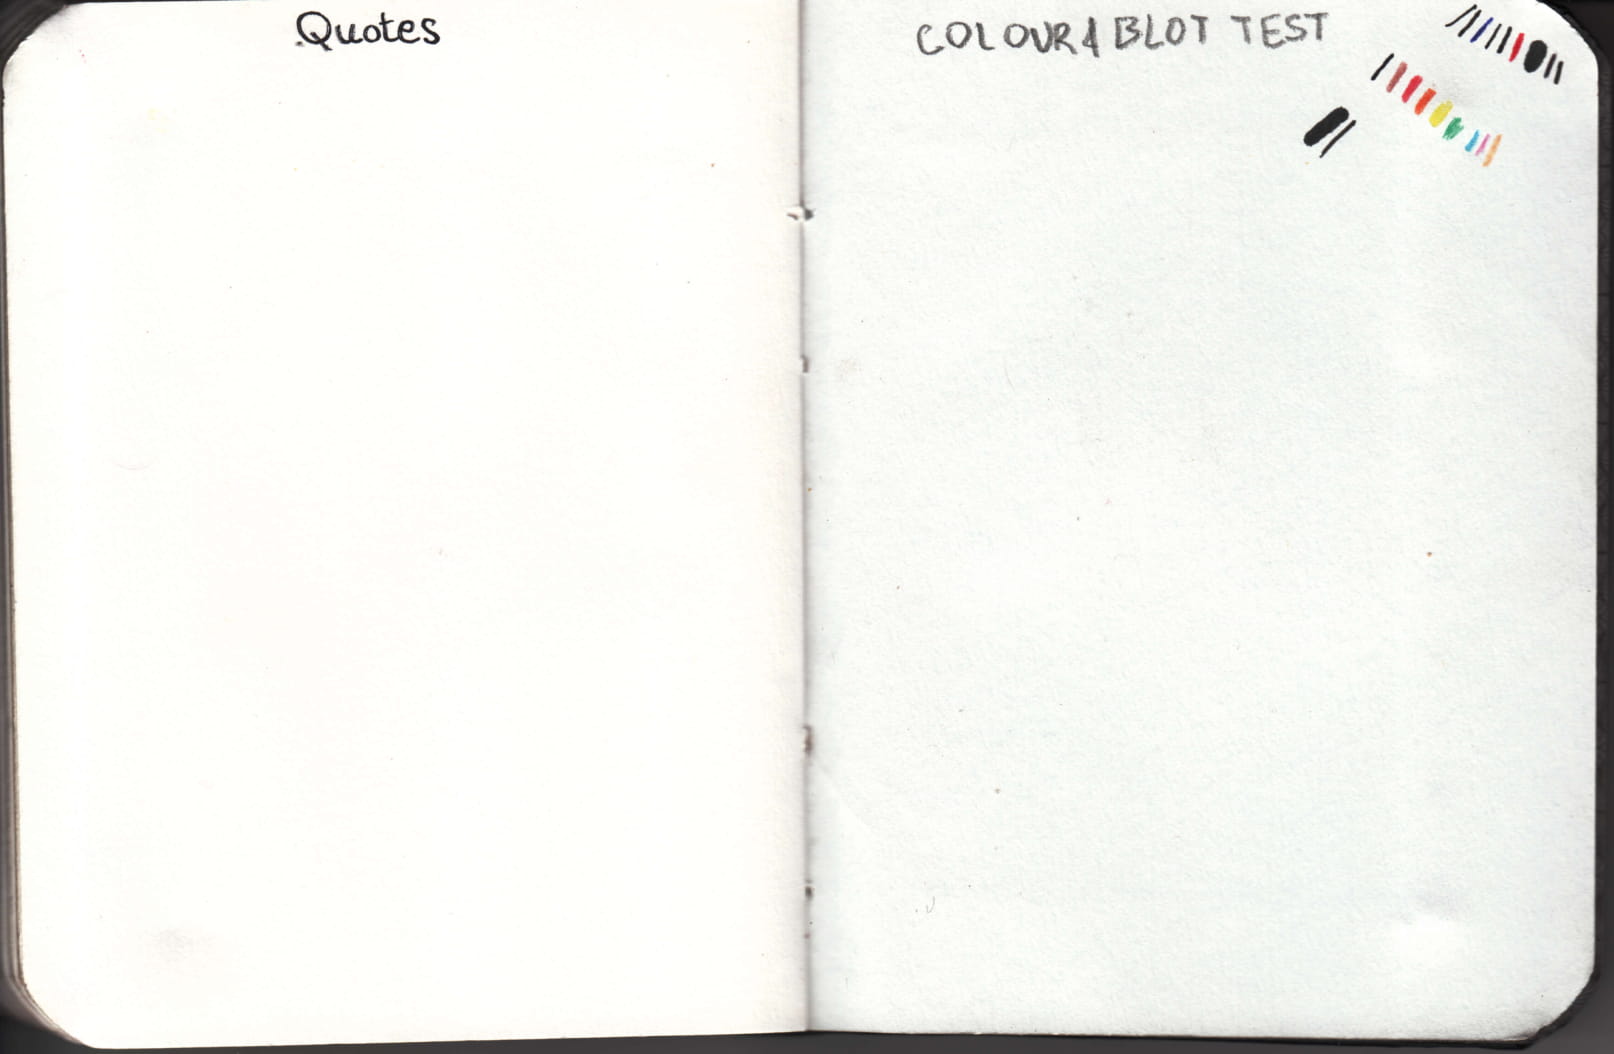 Quotes
COLOUR & BLOT TEST